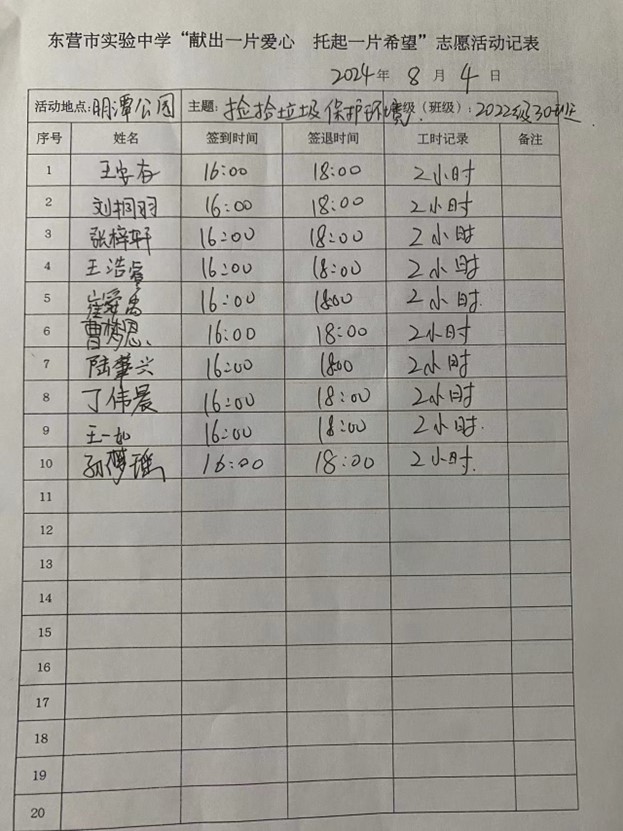 东营市实验中学“献出一片爱心 托起一片希望”志愿活动记表
2024年 8 月 4 日
活动地点:明潭公园 主题:捡拾垃圾保护环境 级(班级):2022级30班
序号 姓名 签到时间 签退时间 工时记录 备注
1 王 16:00 18:00 2小时
2 刘桐羽 16:00 18:00 2小时
3 张梓轩 16:00 18:00 2小时
4 王浩睿 16:00 18:00 2小时
5 崔舜禹 16:00 18:00 2小时
6 曹梦恩 16:00 18:00 2小时
7 陆肇兴 16:00 18:00 2小时
8 丁伟晨 16:00 18:00 2小时
9 王一如 16:00 18:00 2小时
10 孙梦瑶 16:00 18:00 2小时
11
12
13
14
15
16
17
18
19
20